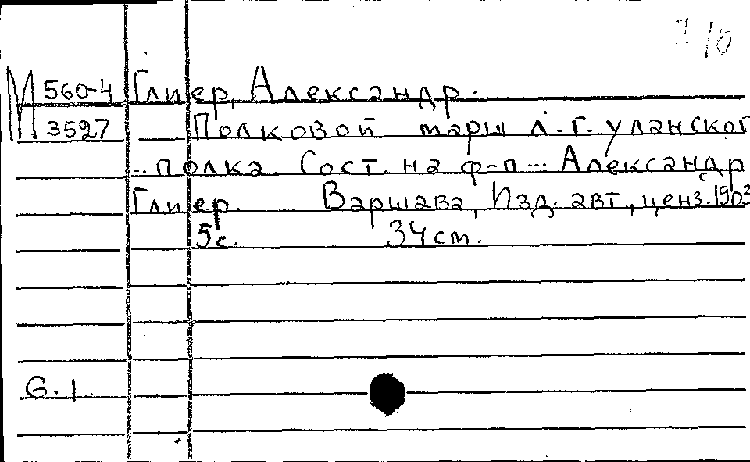 М 560-4 Глиер, Александр.
3527 Полковой марш л.-г. уланского
... полка. Сост. на ф-п ... Александр
Глиер. Варшава, Изд. авт., ценз. 1902
5с. 34 см.
G. 1